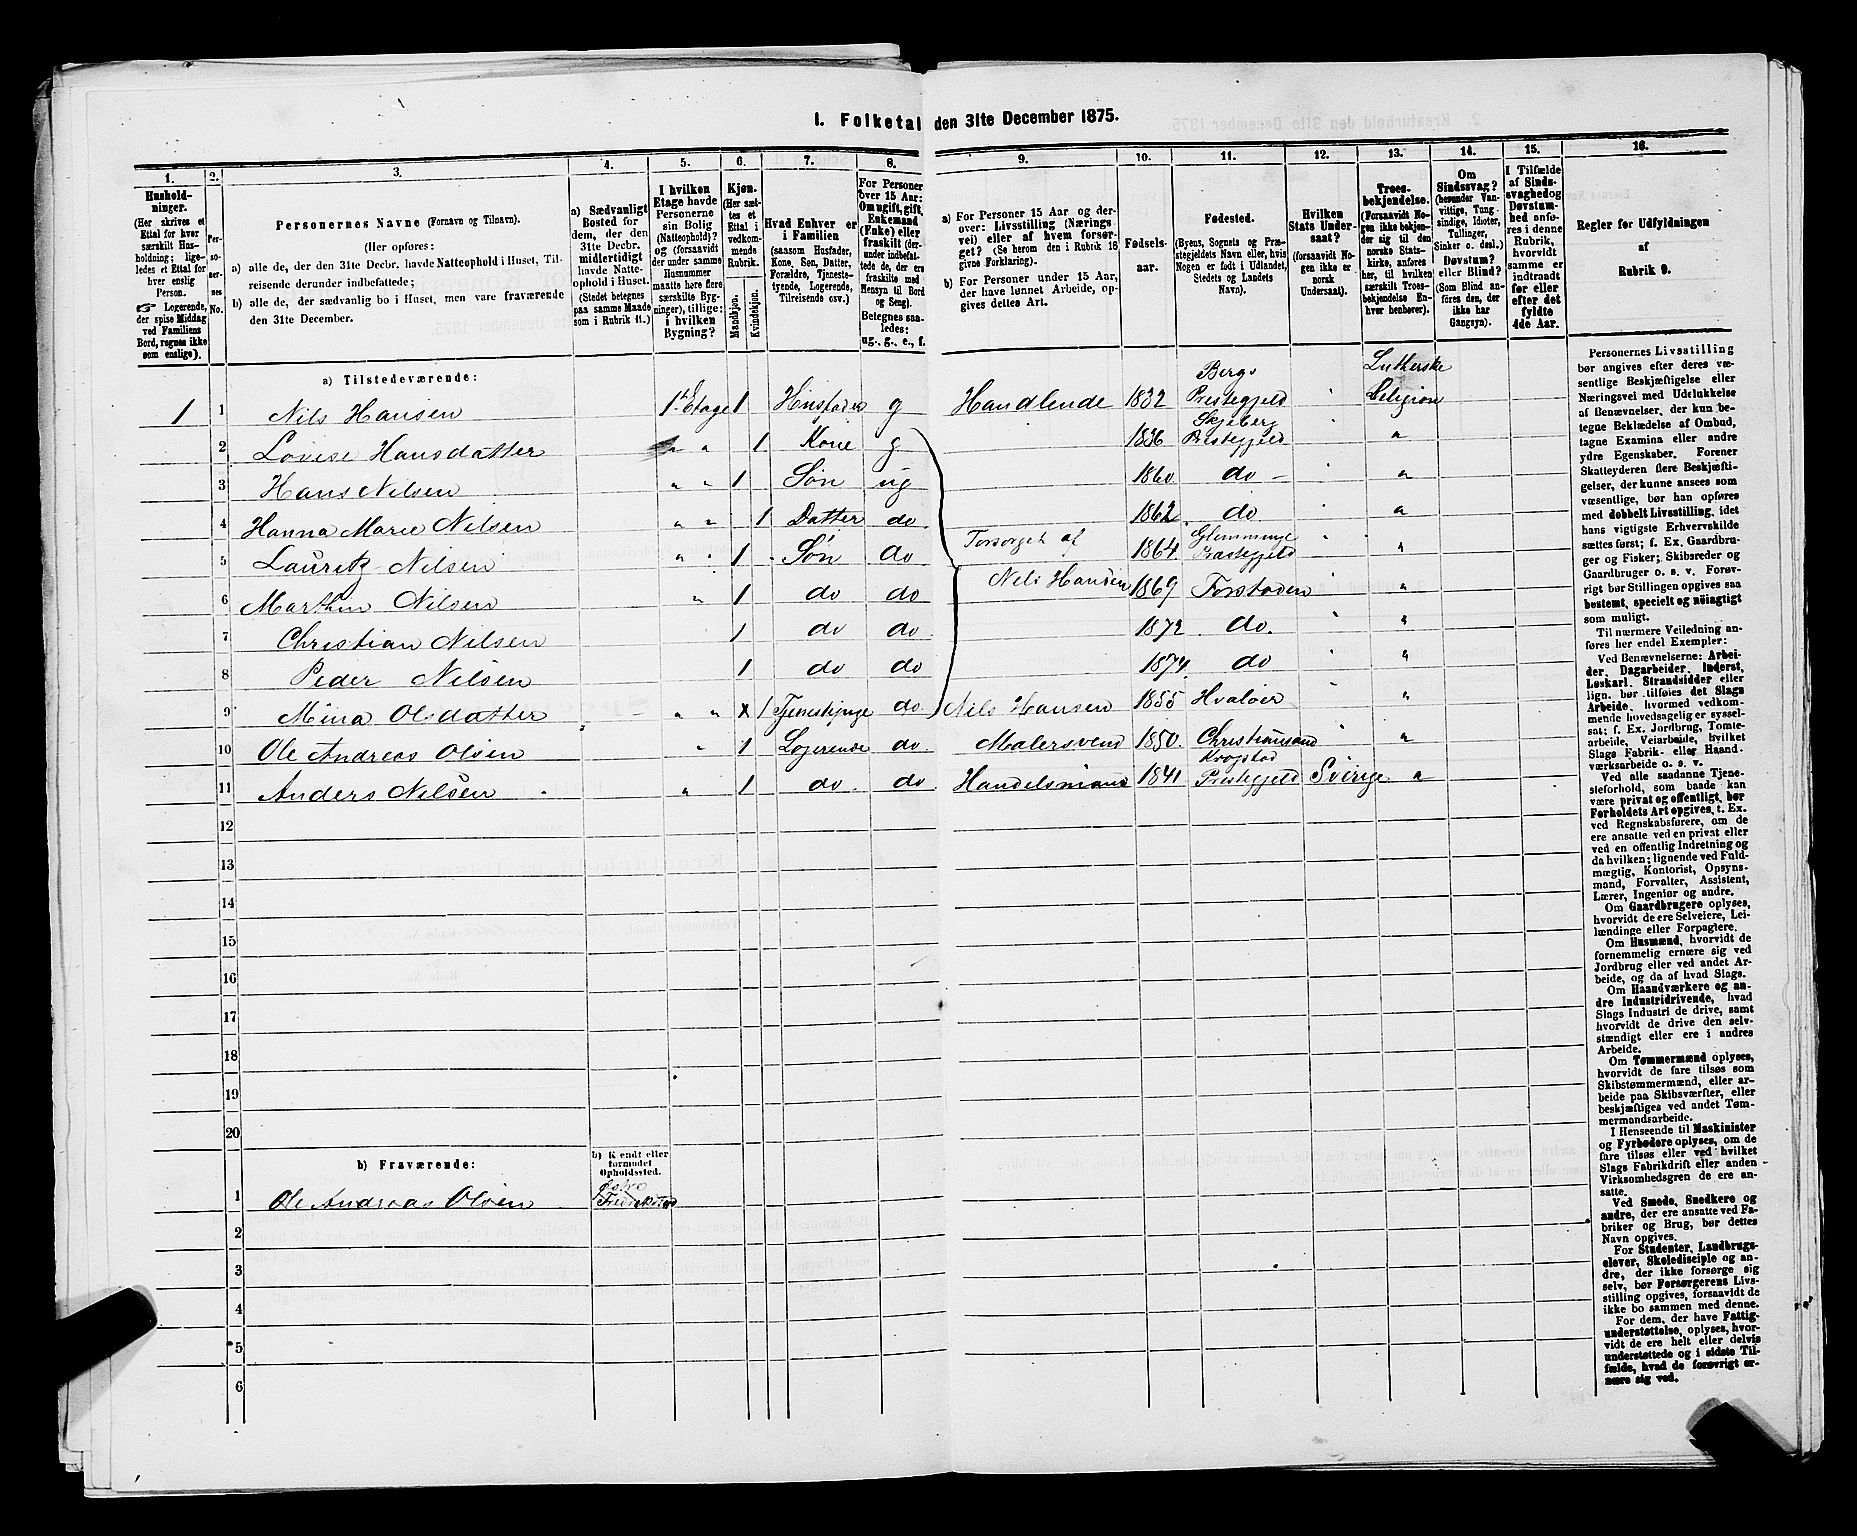 I. Folketal den 31te December 1875.
1. 2. 3. 4. 5. 6. 7. 8. 9. 10. 11. 12. 13. 14. 15. 16.
Husholdninger.
(Her skrives et
Ettal for hver
særskilt Hus-
holdning; lige-
ledes et Ettal for
hver enslig
Person.
Logerende,
der spise Middag
ved Familiens
Bord, regnes ikke
som enslige).
Per-
so-
ner-
nes
No.
Personernes Navne (Fornavn og Tilnavn).
(Her opføres:
a) alle de, der den 31te Decbr. havde Natteophold i Huset, Til-
reisende derunder indbefattede;
b) alle de, der sædvanlig bo i Huset, men vare fraværende
den 31te December.
a) Sædvanligt
Bosted for
dem, der den
31te Decbr.
midlertidigt
havde Natte-
ophold i Huset.
(Stedet betegnes
paa samme Maade
som i Rubrik 11.)
I hvilken
Etage havde
Personerne
sin Bolig
(Natteophold)?
og (forsaavidt
der under samme
Husnummer
maatte høre flere
særskilte Byg-
ninger), tillige:
i hvilken
Bygning?
Kjøn.
(Her sæt-
tes et
Ettal i
vedkom-
mende
Rubrik.
Mandkjøn.
Kvindekjøn.
Hvad Enhver er
i Familien
(saasom Husfader,
Kone, Søn, Datter,
Forældre, Tjeneste-
tyende, Logerende,
Tilreisende osv.)
For Personer
over 15 Aar:
Om ugift, gift,
Enkemand
(Enke) eller
fraskilt (der-
under indbefat-
tede de, der ere
fraskilte med
Hensyn til Bord
og Seng).
Betegnes saa-
ledes:
ug., g., e., f.
a) For Personer 15 Aar og der-
over: Livsstilling (Nærings-
vei) eller af hvem forsør-
get? (Se herom den i Rubrik 16
givne Forklaring).
b) For Personer under 15 Aar,
der have lønnet Arbeide, op-
gives dettes Art.
Fødsels-
aar.
Fødested.
(Byens, Sognets og Præ-
stegjeldets Navn eller, hvis
Nogen er født i Udlandet,
Stedets og Landets
Navn).
Hvilken
Stats Under-
saat?
(forsaavidt No-
gen ikke er
norsk
Undersaat).
Troes-
bekjendelse.
(Forsaavidt No-
gen ikke bekjen-
der sig til den
norske Stats-
kirke, anføres
her, til hvilken
særskilt Troes-
bekjendelse En-
hver henhører).
Om
Sindssvag?
(herunder Van-
vittige, Tung-
sindige, Idioter,
Tullinger,
Sinker o. desl.)
Døvstum?
eller Blind?
(Som Blind an-
føres den, der
ikke har
Gangsyn).
I Tilfælde
af Sinds-
svaghed og
Døvstum-
hed anfø-
res i denne
Rubrik,
hvorvidt
samme er
indtraadt
før eller
efter det
fyldte
4de Aar.
Regler for Udfyldningen
af
Rubrik 9.
a) Tilstedeværende:
1 1 Nils Hansen 1ste Etage 1 Husfader g Handlende 1832 Bergs Prestegjeld Lutherske Religion
2 Lovise Hansdatter " " 1 Kone g 1836 Skjeberg Prestegjeld "
3 Hans Nilsen " " 1 Søn ug 1860 do "
4 Hanna Marie Nilsen " " 1 Datter do. 1862. do "
5 Lauritz Nilsen " " 1 Søn do Forsørget af 1864 Glemminge Prestegjeld "
6 Marthin Nilsen " 1 do do Nils Hansen 1869 Forstaden "
7 Christian Nilsen 1 do do. 1872. do. "
8 Peder Nilsen 1 do do 1874. do "
9 Mina Olsdatter " " x 1 Tjenestpige do Nils Hansen 1855 Hvaløer "
10 Ole Andreas Olsen " 1 Logerende do. Malersvend 1850. Christianssand "
11 Anders Nilsen " 1 do. do. Handelsmand 1841 Krogstad Prestegjeld Sverige "
12
13
14
15
16
17
18
19
20
b) Fraværende:
b) Kjendt eller
formodet
Opholdssted.
1 Ole Andreas Olsen Østre Fredrikstad
2
3
4
5
6
Personernes Livsstilling
bør angives efter deres væ-
sentlige Beskjæftigelse eller
Næringsvei med Udelukkelse
af Benævnelser, der kun be-
tegne Beklædelse af Ombud,
tagne Examina eller andre
ydre Egenskaber. Forener
Skatteyderen flere Beskjæfti-
gelser, der kunne ansees som
væsentlige, bør han opføres
med dobbelt Livsstilling, idet
hans vigtigste Erhvervskilde
sættes først; f. Ex. Gaardbru-
ger og Fisker; Skibsreder og
Gaardbruger o. s. v. Forøv-
rigt bør Stillingen opgives saa
bestemt, specielt og nöiagtigt
som muligt.
Til nærmere Veiledning an-
føres her endel Exempler:
Ved Benævnelserne: Arbei-
der, Dagarbeider, Inderst,
Løskarl, Strandsidder eller
lign. bør tilføies det Slags
Arbeide, hvormed vedkom-
mende hovedsagelig er syssel-
sat; f. Ex. Jordbrug, Tomte-
arbeide, Veiarbeide, hvilket
Slags Fabrik- eller Haand-
værksarbeide o. s. v.
Ved alle saadanne Tjene-
steforhold, som baade kan
være privat og offentligt, bør
Forholdets Art opgives, t. Ex.
ved Regnskabsførere, om de
ere ansatte ved en privat eller
ved en offentlig Indretning og
da hvilken; lignende ved Fuld-
mægtig, Kontorist, Opsyns-
mand, Forvalter, Assistent,
Lærer, Ingeniør og andre.
Om Gaardbrugere oplyses,
hvorvidt de ere Selveiere, Lei-
lændinge eller Forpagtere.
Om Husmænd, hvorvidt de
fornemmelig ernære sig ved
Jordbrug eller ved andet Ar-
beide, og da af hvad Slags.
Om Haandværkere og an-
dre Industridrivende, hvad
Slags Industri de drive, samt
hvorvidt de drive den selv-
stændigt eller ere i andres
Arbeide.
Om Tømmermænd oplyses,
hvorvidt de fare tilsøs som
Skibstømmermænd, eller ar-
beide paa Skibsværfter, eller
beskjæftiges ved andet Tøm-
mermandsarbeide.
I Henseende til Maskinister
og Fyrbødere oplyses, om de
fare tilsøs eller ved hvilket
Slags Fabrikdrift eller anden
Virksomhedsgren de ere an-
satte.
Ved Smede, Snedkere og
andre, der ere ansatte ved Fa-
briker og Brug, bør dettes
Navn opgives.
For Studenter, Landbrugs-
elever, Skoledisciple og an-
dre, der ikke forsørge sig
selv, bør Forsørgerens Livs-
stilling opgives, forsaavidt de
ikke bo sammen med denne.
For dem, der have Fattig-
understøttelse, oplyses, hvor-
vidt de ere helt eller delvis
understøttede og i sidste Til-
fælde, hvad de forøvrigt er-
nære sig ved.